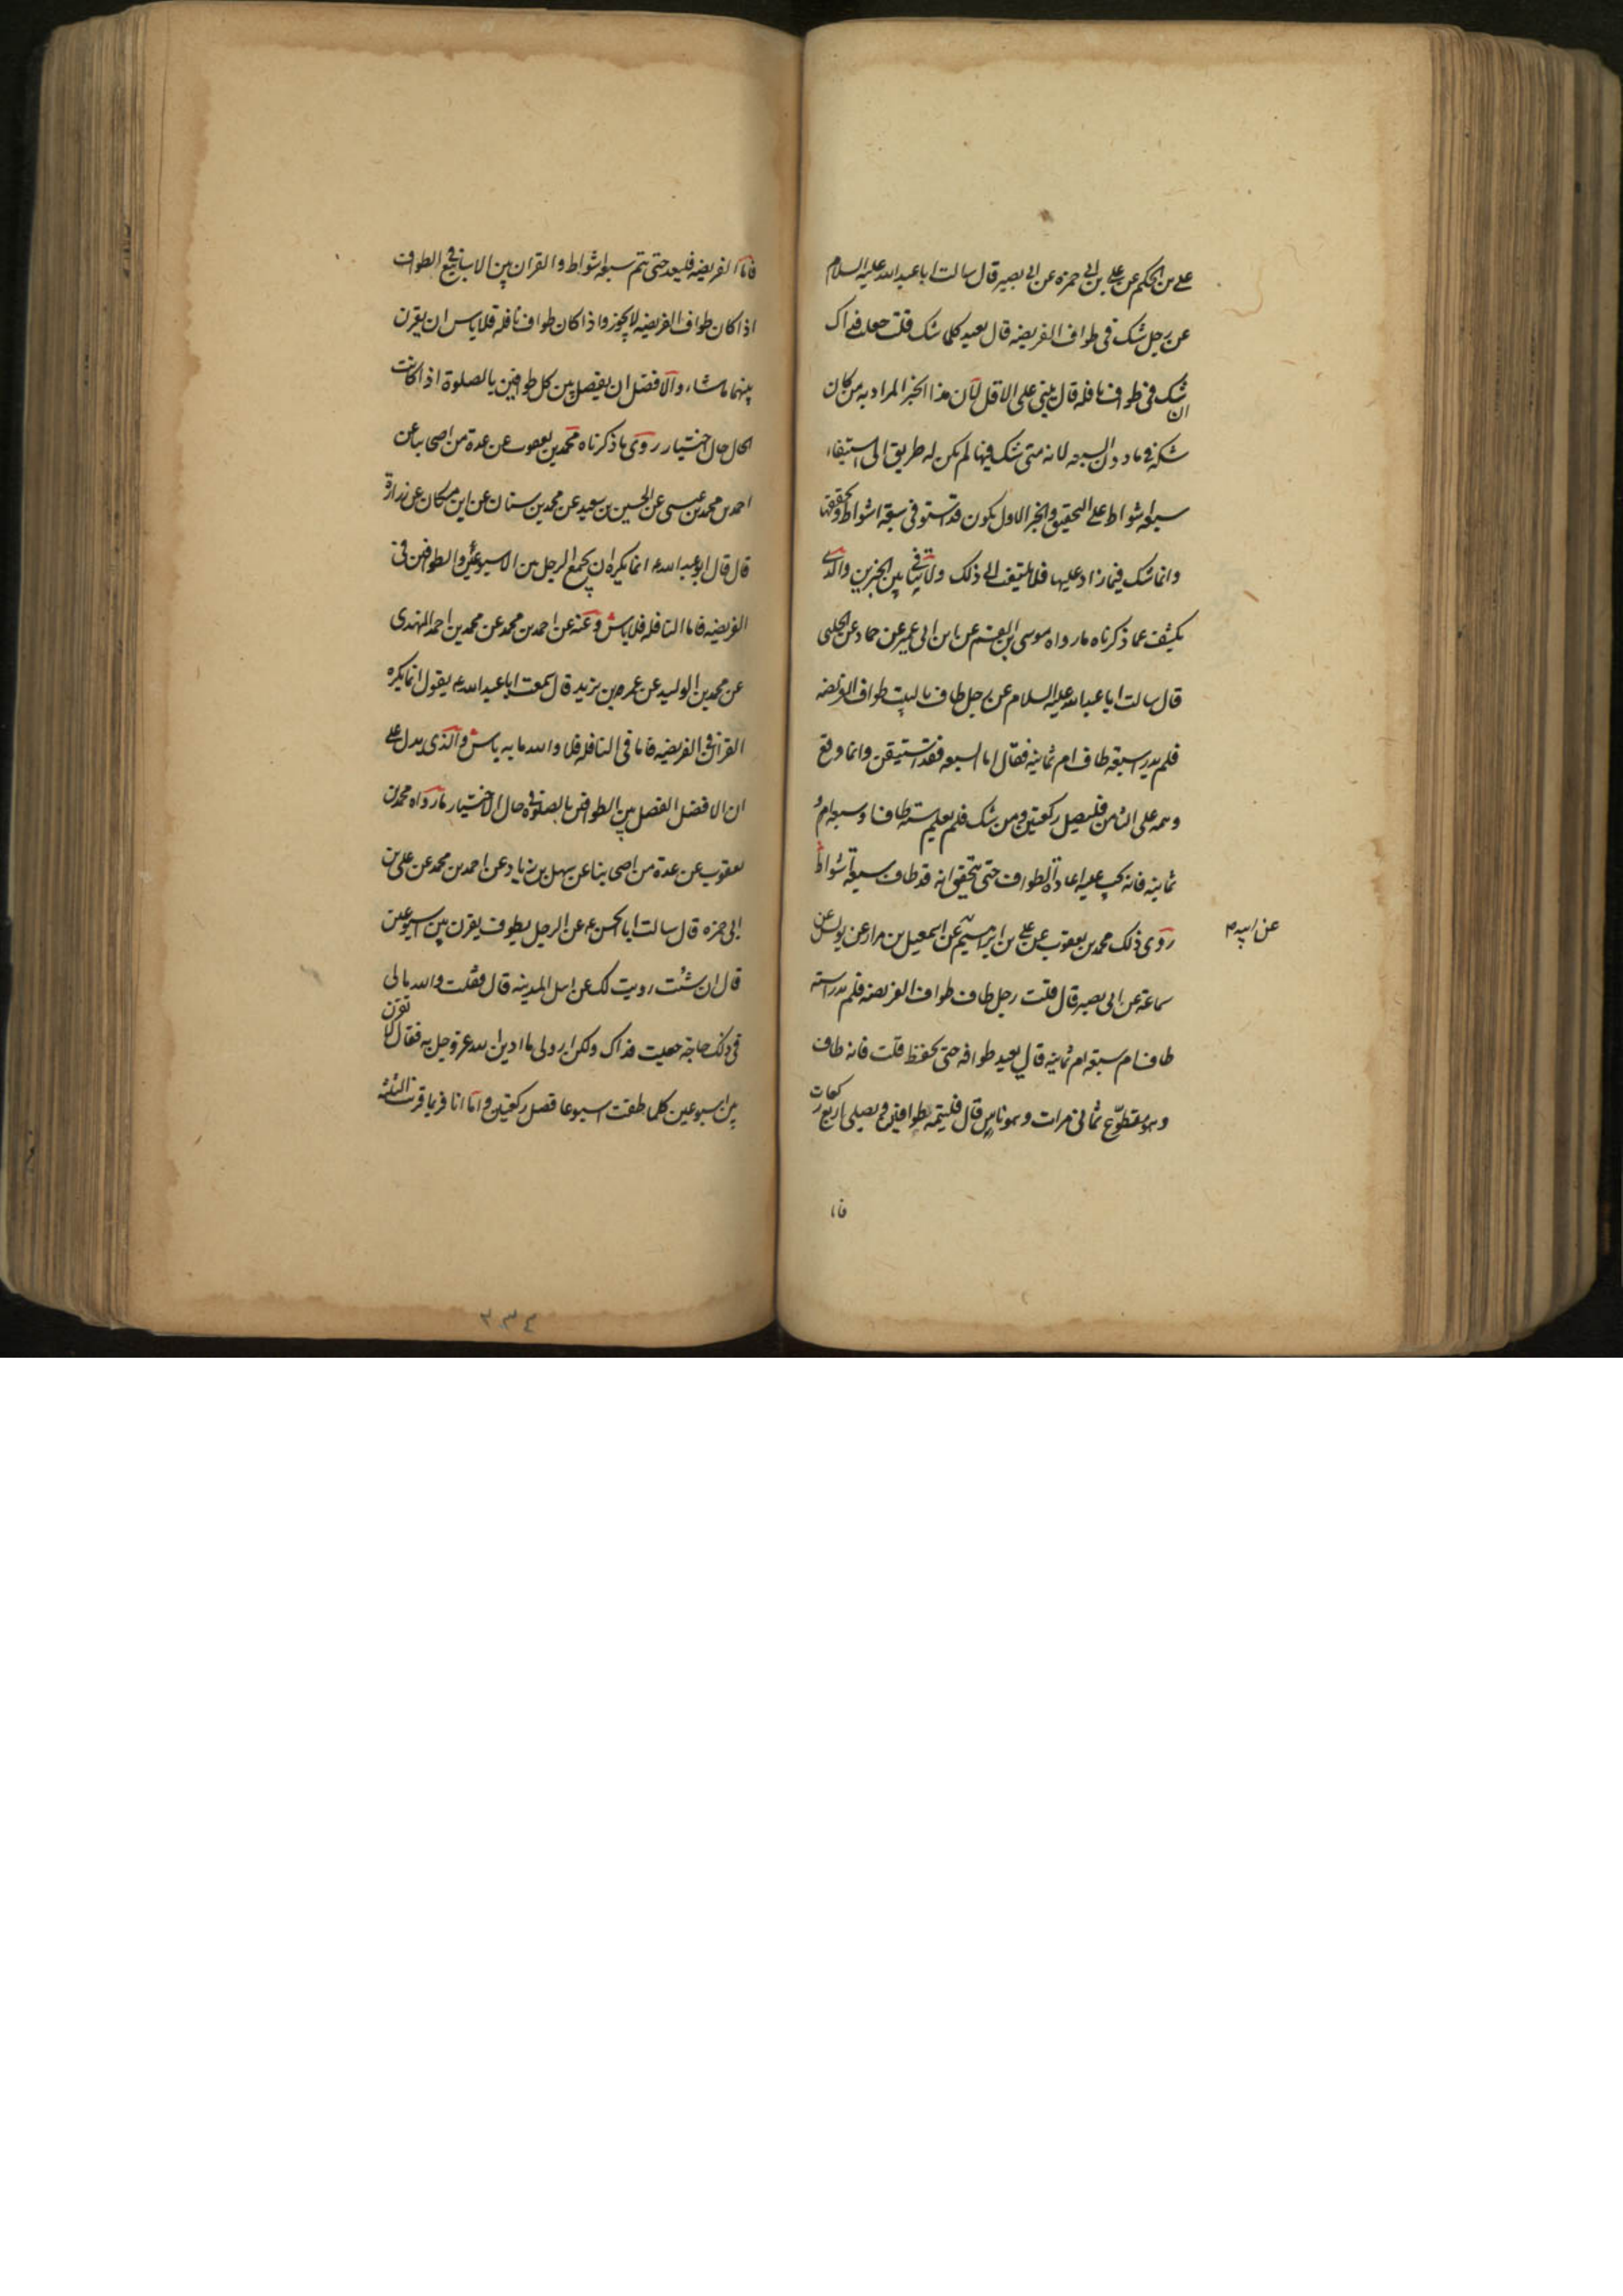 علي بن الحكم عن علي بن ابي حمزه عن ابي بصير قال سالت ابا عبد الله عليه السلام
عن رجل شك في طواف الفريضه قال يعيد كلما شك قلت جعلت فداك
شك في طواف نافله قال يبني على الاقل لان هذا الخبر المراد به من كان
شكه في ما دون السبعه لانه متى شك فيها لم يكن له طريق الى استيفاء
سبعه اشواط على التحقيق والخبر الاول يكون قد استوفى سبعة اشواط وتحققها
وانما شك فيما زاد عليها فلا يلتفت الى ذلك ولا تنافي بين الخبرين والذي
يكشف عما ذكرناه ما رواه موسى بن القسم عن ابن ابي عمير عن حماد عن الحلبي
قال سالت ابا عبد الله عليه السلام عن رجل طاف بالبيت طواف الفريضه
فلم يدر سبعة طاف ام ثمانيه فقال اما السبعه فقد استيقن وانما وقع
وهمه على الثامن فليصل ركعتين ومن شك فلم يعلم سته طاف او سبعه ام
ثمانيه فانه يجب عليه اعادة الطواف حتى يتحقق انه قد طاف سبعة اشواط
روى ذلك محمد بن يعقوب عن علي بن ابراهيم عن اسمعيل بن مرار عن يونس عن
عن ابيه م
سماعة عن ابي بصير قال قلت رجل طاف طواف الفريضه فلم يدر استه
طاف ام سبعه ام ثمانيه قال يعيد طوافه حتى يحفظ قلت فانه طاف
وهو متطوّع ثماني مرات وهو ناس قال فليتمه طوافين ويصلي اربع ركعات
فاما
فامّا الفريضه فليعد حتى يتم سبعة اشواط والقران بين الاسابيع في الطواف
اذا كان طواف الفريضه لا يجوز واذا كان طواف نافله فلا باس ان يقرن
بينهما ما شاء والافضل ان يفصل بين كل طوافين بالصلوة اذا كانت
الحال حال اختيار روى ما ذكرناه محمد بن يعقوب عن عدة من اصحابنا عن
احمد بن محمد بن عيسى عن الحسين بن سعيد عن محمد بن سنان عن ابن مسكان عن زرارة
قال قال ابو عبد الله ع انما يكره ان يجمع الرجل بين الاسبوعين والطوافين في
الفريضه فاما النافله فلا باس وعنه عن احمد بن محمد عن محمد بن احمد النهدي
عن محمد بن الوليد عن عمر بن يزيد قال سمعت ابا عبد الله ع يقول انما يكره
القران في الفريضه فاما في النافله فلا والله ما به باس والذي يدل على
ان الافضل الفصل بين الطوافين بالصلوة في حال الاختيار ما رواه محمد بن
يعقوب عن عدة من اصحابنا عن سهل بن زياد عن احمد بن محمد عن علي بن
ابي حمزه قال سالت ابا الحسن ع عن الرجل يطوف يقرن بين اسبوعين
قال ان شئت رويت لك عن اهل المدينه قال فقلت والله ما لي
في ذلك حاجة جعلت فداك ولكن ارو لي ما ادين الله عز وجل به فقال لا تقرن
بين اسبوعين كلما طفت اسبوعا فصل ركعتين واما انا فربما قرنت الثلثه
٣٣٤